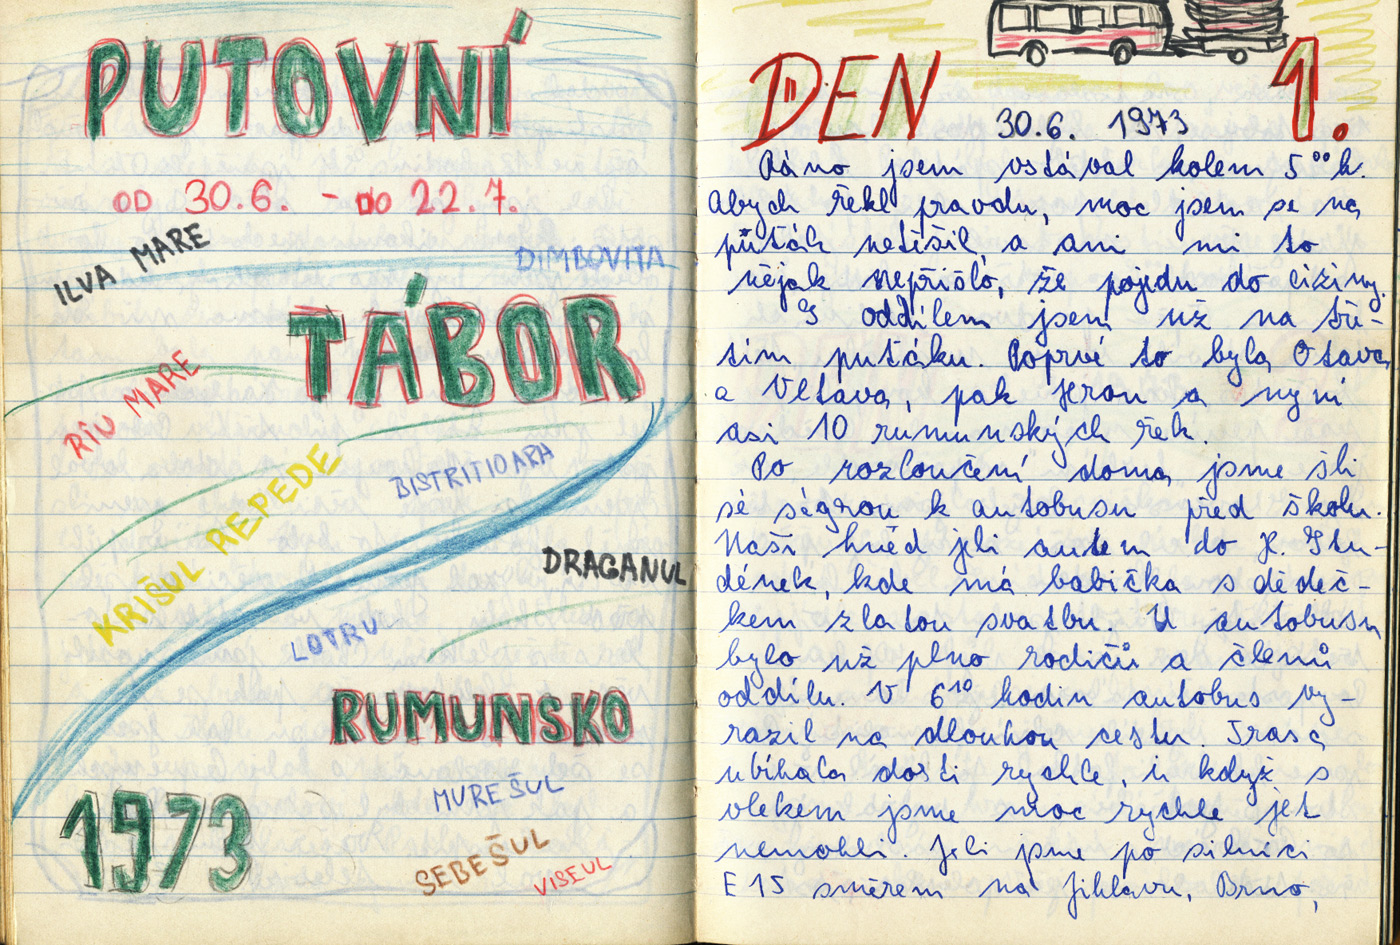 PUTOVNÍ
OD 30.6. - DO 22.7.
ILVA MARE
DIMBOVITA
TÁBOR
RÎU MARE
KRIŠUL REPEDE
BISTRITIOARA
DRAGANUL
LOTRU
RUMUNSKO
MUREŠUL
1973
SEBEŠUL
VISEUL
DEN 1.
30.6. 1973
Ráno jsem vstával kolem 5°° h.
Abych řekl pravdu, moc jsem se na
puťák netěšil, a ani mi to
nějak nepřišlo, že pojedu do ciziny.
S oddílem jsem už na tře-
tím puťáku. Poprvé to byla Otava
a Vltava, pak Hron a nyní
asi 10 rumunských řek.
Po rozloučení doma jsme šli
se ségrou k autobusu před školu.
Naši hned jeli autem do H. Stu-
dének, kde má babička s dědeč-
kem zlatou svatbu. U autobusu
bylo už plno rodičů a členů
oddílu. V 6¹⁰ hodin autobus vy-
razil na dlouhou cestu. Trasa
ubíhala dosti rychle, i když s
vlekem jsme moc rychle jet
nemohli. Jeli jsme po silnici
E 15 směrem na Jihlavu, Brno,